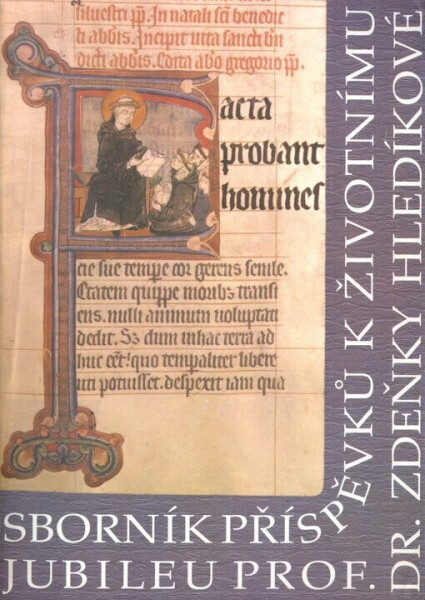 siluestri pp. In natali sci benedic
ti abbis. Incipit uita sancti bn
dicti abbis. Edita abo gregorio pp.
Facta
probant
homines
cie sue tempe cor gerens senile.
Etatem quippe moribz transi
ens. nulli animum uoluptati
dedit. Sz dum in hac terra ad
huc eet. quo temporaliter libere
uti potuisset. despexit iam qua
SBORNÍK PŘÍSPĚVKŮ K ŽIVOTNÍMU
JUBILEU PROF. DR. ZDEŇKY HLEDÍKOVÉ